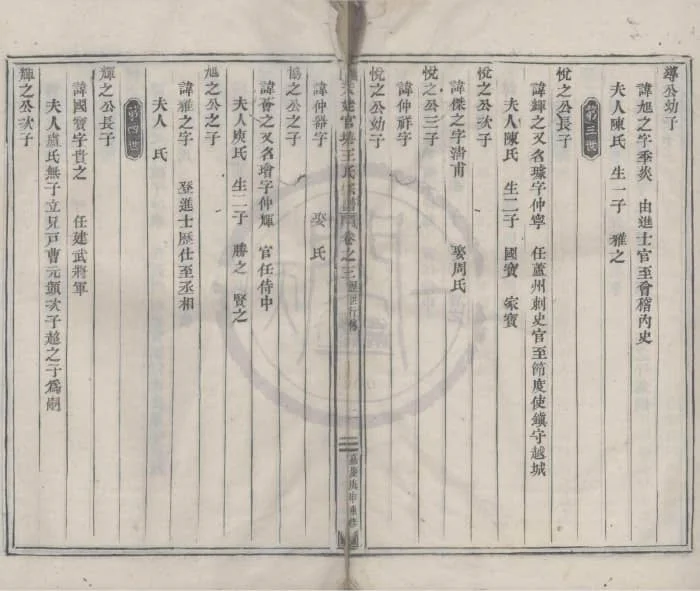 導公幼子
諱旭之字季炎 由進士官至會稽內史
夫人陳氏 生一子 雅之
第三世
悅之公長子
諱輝之又名璩字仲寧 任蘆州刺史官至節度使鎮守越城
夫人陳氏 生二子 國寶 家寶
悅之公次子
諱傑之字清甫 娶周氏
悅之公三子
諱仲祥字
悅之公幼子
官塘王氏宗譜 卷之三 世行傳
嘉慶庚申重修
諱仲器字 娶 氏
協之公之子
諱薈之又名璯字仲輝 官任侍中
夫人庾氏 生二子 勝之 賢之
旭之公之子
諱雅之字 登進士歷仕至丞相
夫人 氏
第四世
輝之公長子
諱國寶字貴之 任建武將軍
夫人盧氏無子立兄戸曹元顯次子越之子為嗣
輝之公次子